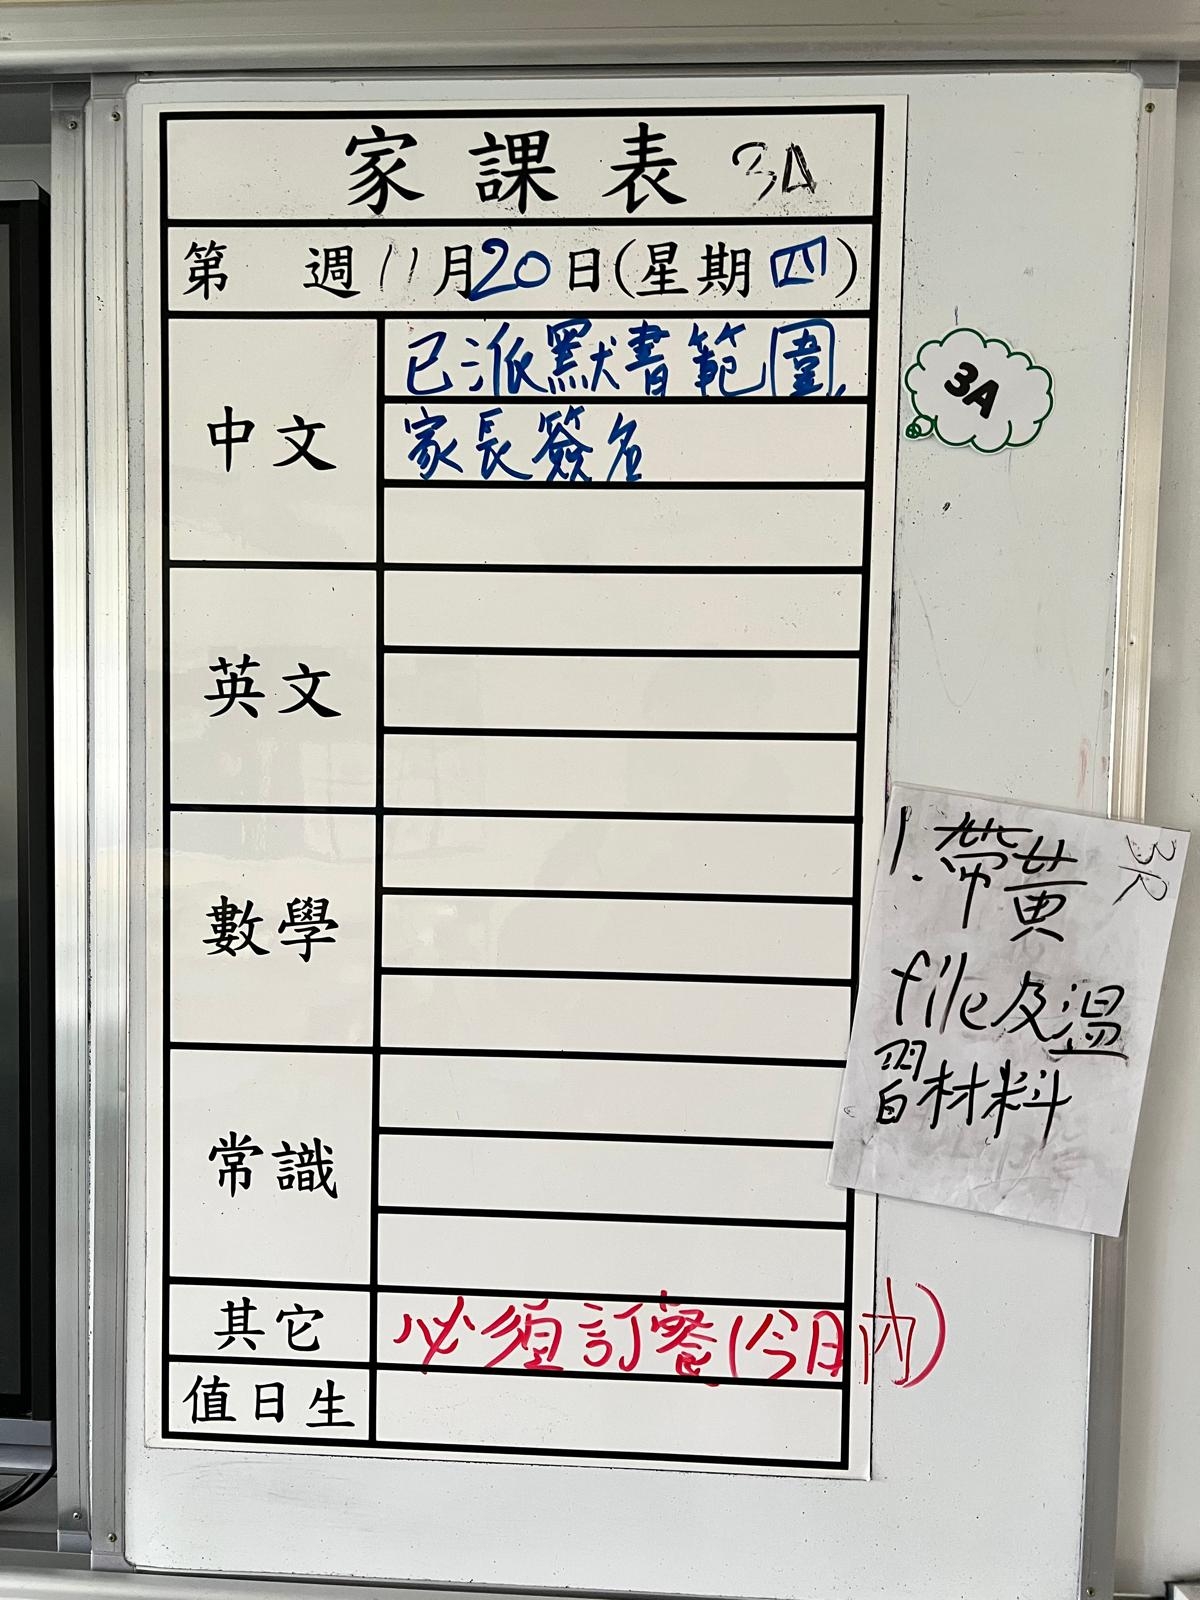 家課表 3A
第 週 11月20日(星期四)
中文
已派默書範圍,
家長簽名
3A
英文
數學
常識
3R
1. 帶黃
file及溫
習材料
其它
必須訂餐(今日內)
值日生